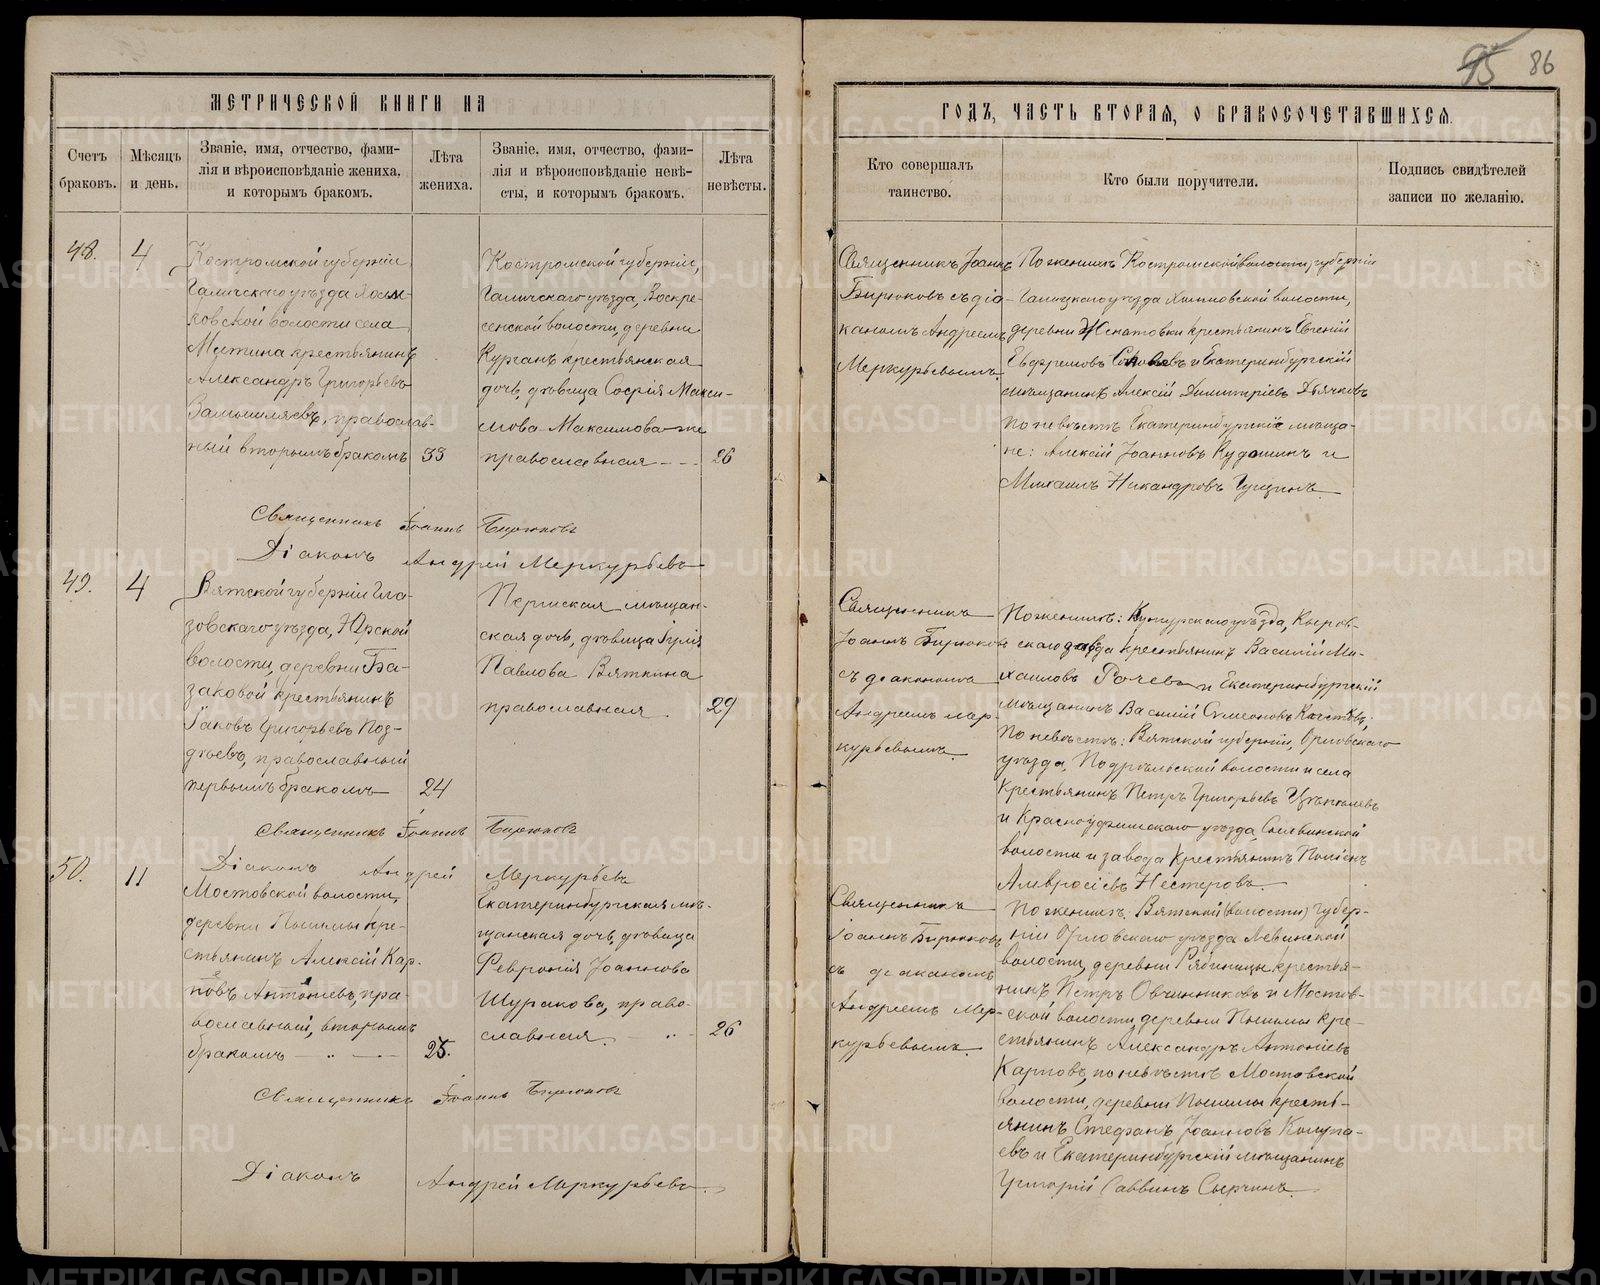 95 86
МЕТРИЧЕСКОЙ КНИГИ НА
Счетъ браковъ.
Мѣсяцъ и день.
Званіе, имя, отчество, фами-
лія и вѣроисповѣданіе жениха,
и которымъ бракомъ.
Лѣта жениха.
Званіе, имя, отчество, фами-
лія и вѣроисповѣданіе невѣ-
сты, и которымъ бракомъ.
Лѣта невѣсты.
48.
4
Костромской губерніи
Галичскаго уѣзда
ковской волости села
крестьянинъ
Александръ Григорьевъ
православ-
ный вторымъ бракомъ
33
Костромской губерніи,
Галичскаго уѣзда, Воскре-
сенской волости, деревни
Курганъ крестьянская
дочь, дѣвица Софія Макси-
мова Максимова же
православная
26
Священникъ Іоаннъ Бирюковъ
Діаконъ Андрей Меркурьевъ
49.
4
Вятской губерніи Гла-
зовскаго уѣзда, Юрской
волости, деревни Ба-
заковой крестьянинъ
Іаковъ Григорьевъ Поз-
дѣевъ, православный
первымъ бракомъ
24
Пермская мѣщан-
ская дочь, дѣвица Юлія
Павлова Вяткина
православная
29
Священникъ Іоаннъ Бирюковъ
Діаконъ Андрей Меркурьевъ
50.
11
Мостовской волости,
деревни Пышмы кре-
стьянинъ Алексій Кар-
повъ Антоніевъ, пра-
вославный, вторымъ
бракомъ
25.
Екатеринбургская мѣ-
щанская дочь, дѣвица
Февронія Іоаннова
Шуракова, право-
славная
26
Священникъ Іоаннъ Бирюковъ
Діаконъ Андрей Меркурьевъ
ГОДЪ, ЧАСТЬ ВТОРАЯ, О БРАКОСОЧЕТАВШИХСЯ.
Кто совершалъ
таинство.
Кто были поручители.
Подпись свидѣтелей
записи по желанію.
Священникъ Іоаннъ
Бирюковъ съ діа-
кономъ Андреемъ
Меркурьевымъ.
По женихѣ Костромской (волости) губерніи
Галицкаго уѣзда волости,
деревни Игнатовки крестьянинъ Евгеній
Евфремовъ и Екатеринбургскій
мѣщанинъ Алексій Димитріевъ Дьячковъ
По невѣстѣ Екатеринбургскіе мѣща-
не: Алексій Іоанновъ Кудошинъ и
Михаилъ Никандровъ Гущинъ
Священникъ
Іоаннъ Бирюковъ
съ діакономъ
Андреемъ Мер-
курьевымъ.
По женихѣ: Кунгурскаго уѣзда, Кыров-
скаго завода крестьянинъ Василій Ми-
хаиловъ Рочевъ и Екатеринбургскій
мѣщанинъ Василій Симеоновъ
По невѣстѣ: Вятской губерніи, Орловскаго
уѣзда, волости и села
Крестьянинъ Петръ Григорьевъ
и Красноуфимскаго уѣзда, Сылвинской
волости и завода Крестьянинъ
Амвросіевъ Нестеровъ.
Священникъ
Іоаннъ Бирюковъ
съ діакономъ
Андреемъ Мер-
курьевымъ.
По женихѣ: Вятской (волости) губер-
ніи Орловскаго уѣзда Левинской
волости, деревни Рябиницы крестья-
нинъ Петръ Овчинниковъ и Мостов-
ской волости, деревни Пышмы кре-
стьянинъ Александръ Антоніевъ
Карповъ, по невѣстѣ Мостовской
волости, деревни Пышмы кресть-
янинъ Стефанъ Іоанновъ Колупа-
евъ и Екатеринбургскій мѣщанинъ
Григорій Саввинъ Сырчинъ.